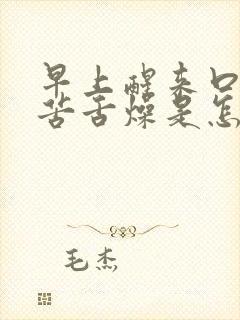 早上醒来口
苦舌燥是怎
毛杰